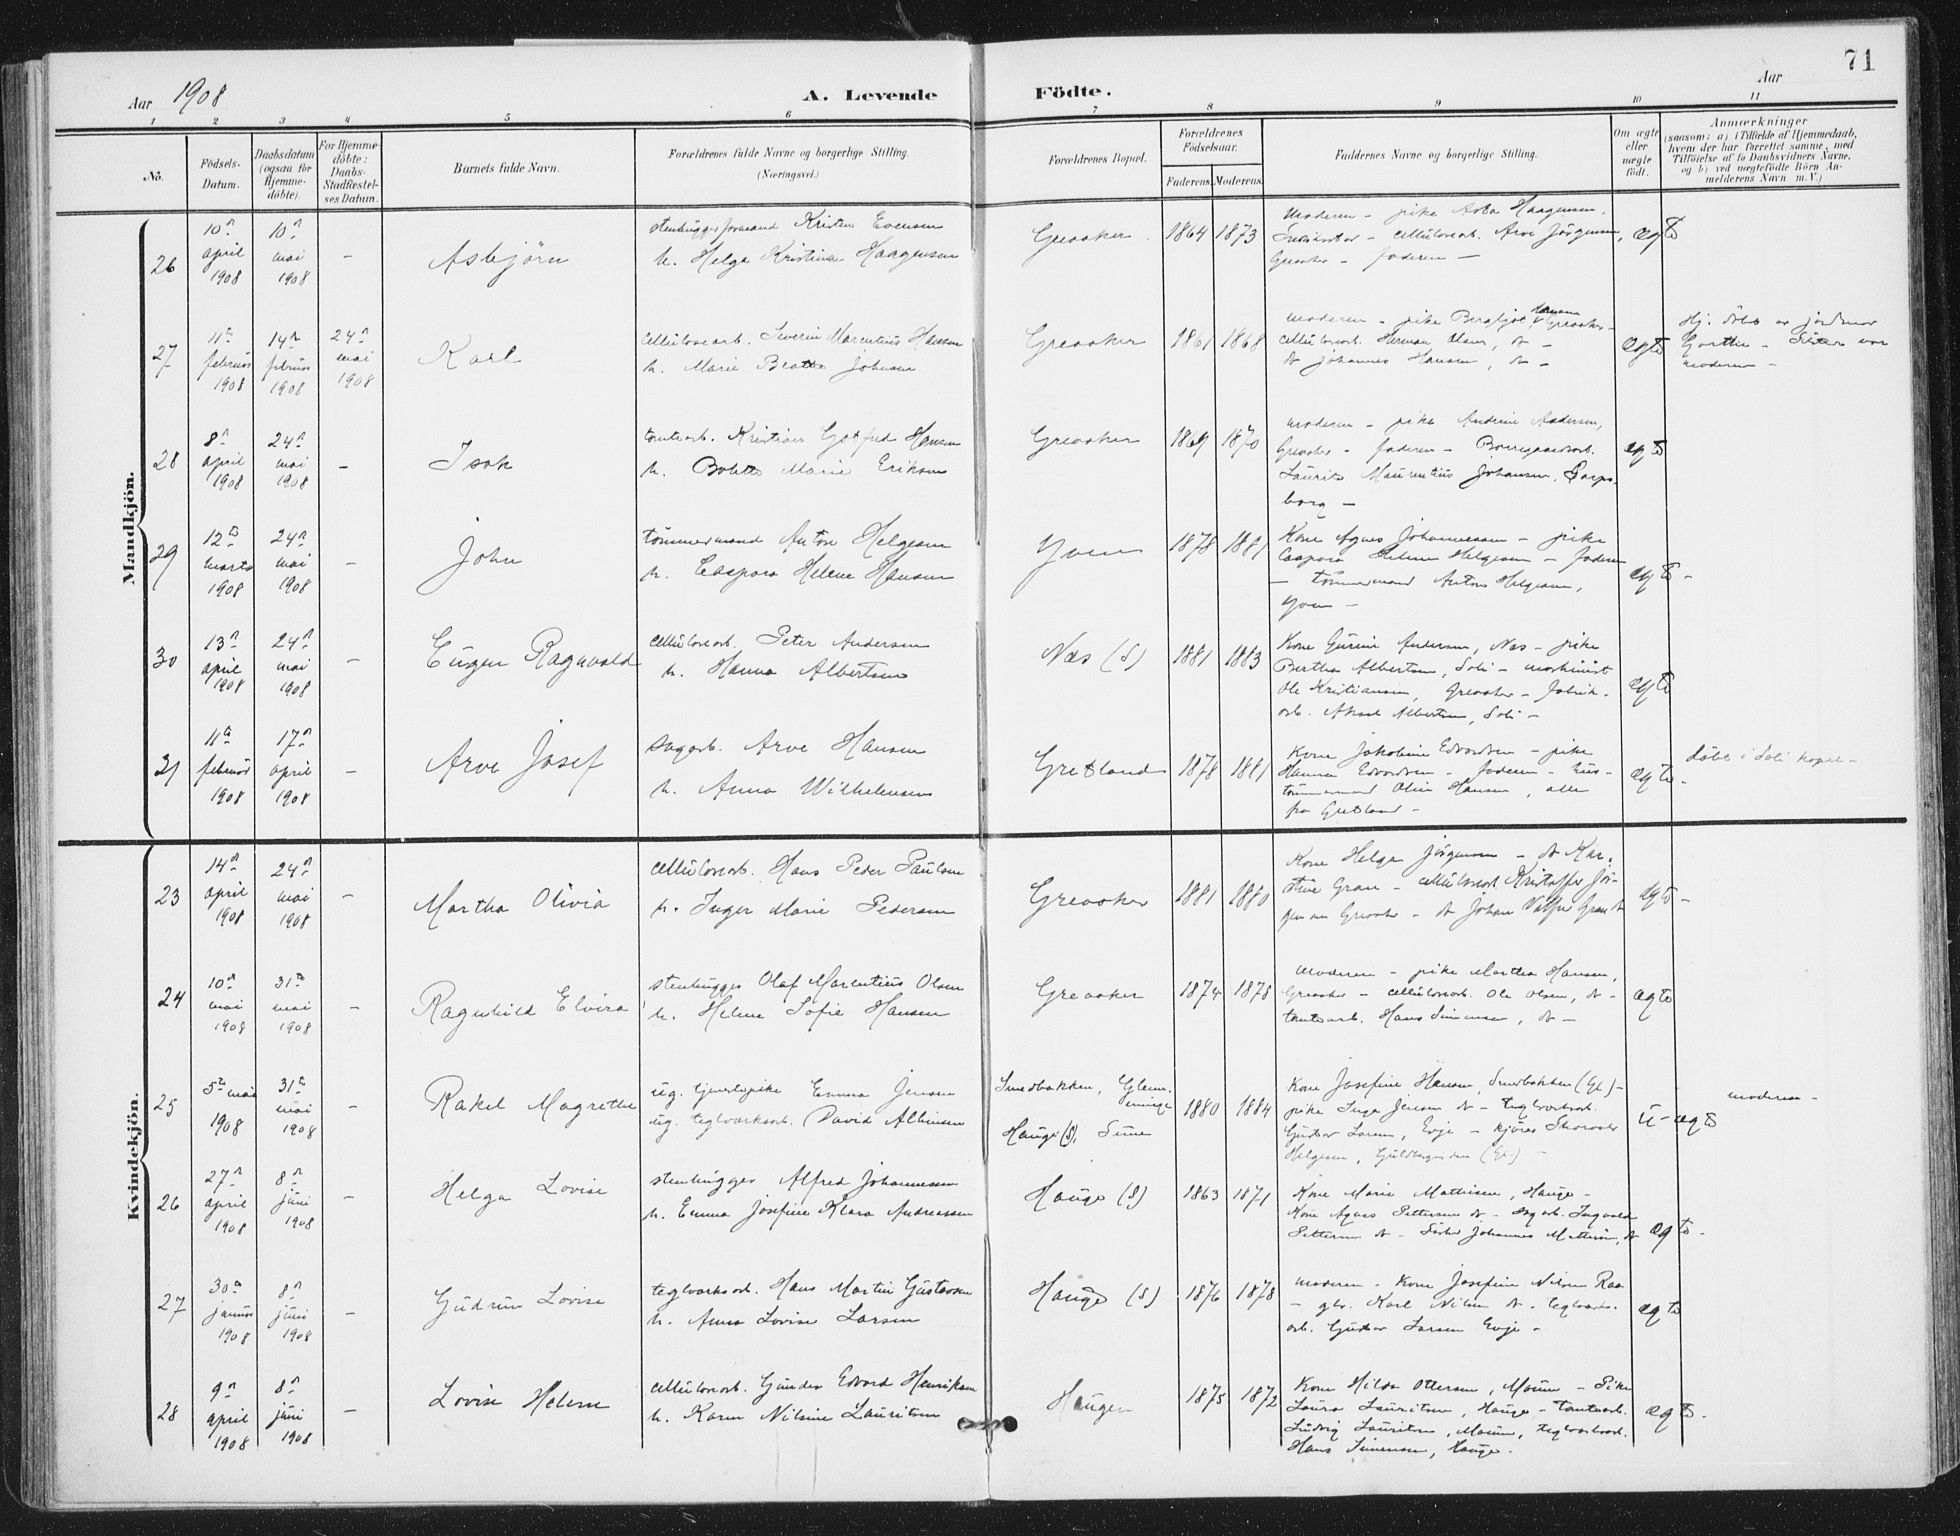 71
Aar 1908
A. Levende Födte.
Aar
1 2 3 4 5 6 7 8 9 10 11
No.
Födsels-
Datum.
Daabsdatum
(ogsaa for
Hjemme-
döbte).
For Hjemme-
döbte:
Daabs-
Stadfæstel-
ses Datum.
Barnets fulde Navn.
Forældrenes fulde Navne og borgerlige Stilling.
(Næringsvei.)
Forældrenes Bopæl.
Forældrenes
Födselsaar.
Faderens. Moderens.
Faddernes Navne og borgerlige Stilling.
Om ægte
eller
uægte
födt.
Anmærkninger
(saasom: a) i Tilfælde af Hjemmedaab,
hvem der har forrettet samme, med
Tilföielse af to Daabsvidners Navne,
og b) ved uægtefödte Börn An-
melderens Navn m. V.)
Mandkjön.
26
10n april 1908
10n mai 1908
–
Asbjörn
stenhuggerformand Kristen Evensen
h. Helga Kristine Haagensen
Greaaker.
1864 1873
moderen – pike Asta Haagensen.
celluloseab. Arve Jörgensen,
Greaaker – faderen –
ægte
27
11te februar 1908
14n februar 1908
24n mai 1908
Karl
celluloseab. Severin Marentius Hansen
h. Marie Beathe Johnsen
Greaaker
1861 1868
moderen – pike Bergljot Hansen Greaaker –
celluloseab. Herman Olsen, do –
do Johannes Hansen, do –
ægte
Hj. döbt av jordmor
Gorthe – Sikter var
moderen –
28
8n april 1908
24n mai 1908
–
Isak
tomtearb. Kristian Gotfred Hansen
h. Bolette Marie Eriksen
Greaaker
1869 1870
moderen – pike Andrine Andersen,
Greaaker – faderen – Borregaardsarb.
Laurits Maurentius Johansen, Sarps-
borg –
ægte
29
12te marts 1908
24n mai 1908
–
John
tömmermand Anton Helgesen
h. Caspara Helene Hansen
Yven
1878 1881
Kone Agnes Johannessen – pike
Caspara Helene Helgesen – faderen
– tömmermand Anton Helgesen,
Yven –
ægte –
30
13n april 1908
24n mai 1908
–
Eugen Ragnvald
celluloseab. Peter Andersen
h. Hanna Albertsen
Næs (S)
1881 1883
Kone Gurine Andersen, Næs – pike
Bertha Albertsen, Soli – maskinist
Ole Kristiansen, Greaaker – fabrik-
arb. Aksel Albertsen, Soli –
ægte
31
11te februar 1908
17n april 1908
–
Arve Josef
sagarb. Arve Hansen
h. Anna Wilhelmsen
Gretland
1878 1881
Kone Jakobine Edvardsen – pike
Hanna Edvardsen – faderen – hus-
tömmermand Olin Hansen, alle
fra Gretland –
ægte –
döbt i Soli kapel –
Kvindekjön.
23
14n april 1908
24n mai 1908
–
Martha Olivia
celluloseab. Hans Peder Paulsen
h. Inger Marie Pedersen
Greaaker
1881 1880
Kone Helga Jörgensen – do Kar-
otine Gran – celluloseab. Kristoffer Jör-
gensen Greaaker – do Johan Gran do
ægte –
24
10n mai 1908
31te mai 1908
–
Ragnhild Elvira
stenhugger Olaf Marentius Olsen
h. Helene Sofie Hansen
Greaaker
1874 1878
moderen – pike Martha Hansen,
Greaaker – celluloseab. Ole Olsen, do –
tomtearb. Hans Simensen, do –
ægte
25
5te mai 1908
31te mai 1908
–
Rakel Magrethe
ug. tjenestepike Emma Jensen
ug. teglverksarb. David Albinsen
Smedbakken, Glem-
minge
Hauge (S), Sune
1880 1884
Kone Josefine Hansen, Smedbakken (Gl.) –
pike Inga Jensen do – teglverksarb.
Gustav Larsen, Evje – kjörer
Helgesen, (Gl.) –
u-ægte
moderen –
26
27n april 1908
8n juni 1908
–
Helga Lovise
stenhugger Alfred Johannessen
h. Emma Josefine Klara Andreassen
Hauge (S)
1863 1871
Kone Marie Mathisen, Hauge –
Kone Agnes Pettersen do – sagarb. Ingvald
Pettersen do – Johannes Mathisen, do
ægte –
27
30te januar 1908
8n juni 1908
–
Gudrun Lovise
teglverksarb. Hans Martin Gustavsen
h. Anna Lovise Larsen
Hauge (S)
1876 1878
moderen – Kone Josefine Nilsen Raa
– gbr. Karl Nilsen do – teglverks-
arb. Gustav Larsen Evje –
ægte
28
9n april 1908
8n juni 1908
–
Lovise Helene
celluloseab. Gunder Edvard Henriksen
h. Karen Nilsine Lauritsen
Haugen
1875 1872
Kone Hilda Ottersen, Moum – Pike
Laura Lauritsen, Hauge – tomtearb.
Ludvig Lauritsen, Moum, teglverksarb.
Hans Simensen, Hauge.
ægte –